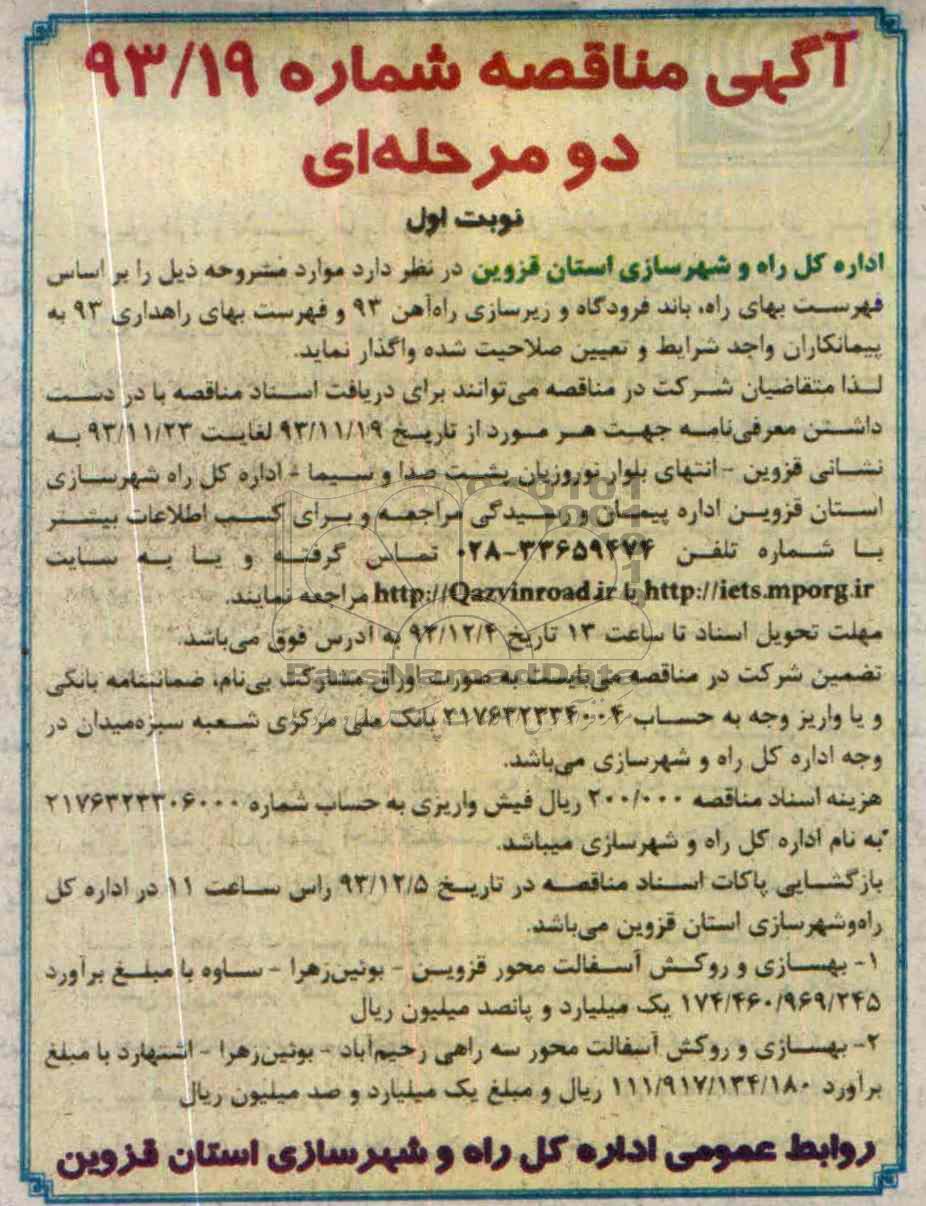 آگهی مناقصه شماره ۹۳/۱۹
دو مرحله‌ای
نوبت اول
اداره کل راه و شهرسازی استان قزوین در نظر دارد موارد مشروحه ذیل را بر اساس
فهرست بهای راه، باند فرودگاه و زیرسازی راه‌آهن ۹۳ و فهرست بهای راهداری ۹۳ به
پیمانکاران واجد شرایط و تعیین صلاحیت شده واگذار نماید.
لذا متقاضیان شرکت در مناقصه می‌توانند برای دریافت اسناد مناقصه با در دست
داشتن معرفی‌نامه جهت هر مورد از تاریخ ۹۳/۱۱/۱۹ لغایت ۹۳/۱۱/۲۳ به
نشانی قزوین - انتهای بلوار نوروزیان پشت صدا و سیما - اداره کل راه شهرسازی
استان قزوین اداره پیمان و رسیدگی مراجعه و برای کسب اطلاعات بیشتر
با شماره تلفن ۳۳۶۵۹۴۷۴-۰۲۸ تماس گرفته و یا به سایت
http://iets.mporg.ir یا http://Qazvinroad.ir مراجعه نمایند.
مهلت تحویل اسناد تا ساعت ۱۳ تاریخ ۹۳/۱۲/۴ به آدرس فوق می‌باشد.
تضمین شرکت در مناقصه می‌بایست به صورت اوراق مشارکت بی‌نام، ضمانتنامه بانکی
و یا واریز وجه به حساب ۲۱۷۶۳۲۳۳۴۰۰۴ بانک ملی مرکزی شعبه سبزه‌میدان در
وجه اداره کل راه و شهرسازی می‌باشد.
هزینه اسناد مناقصه ۲۰۰/۰۰۰ ریال فیش واریزی به حساب شماره ۲۱۷۶۳۲۳۳۰۶۰۰۰
به نام اداره کل راه و شهرسازی میباشد.
بازگشایی پاکات اسناد مناقصه در تاریخ ۹۳/۱۲/۵ راس ساعت ۱۱ در اداره کل
راه‌وشهرسازی استان قزوین می‌باشد.
۱- بهسازی و روکش آسفالت محور قزوین - بوئین‌زهرا - ساوه با مبلغ برآورد
۱۷۴/۴۶۰/۹۶۹/۲۴۵ یک میلیارد و پانصد میلیون ریال
۲- بهسازی و روکش آسفالت محور سه راهی رحیم‌آباد - بوئین‌زهرا - اشتهارد با مبلغ
برآورد ۱۱۱/۹۱۷/۱۳۴/۱۸۰ ریال و مبلغ یک میلیارد و صد میلیون ریال
روابط عمومی اداره کل راه و شهرسازی استان قزوین
ParsNamadData